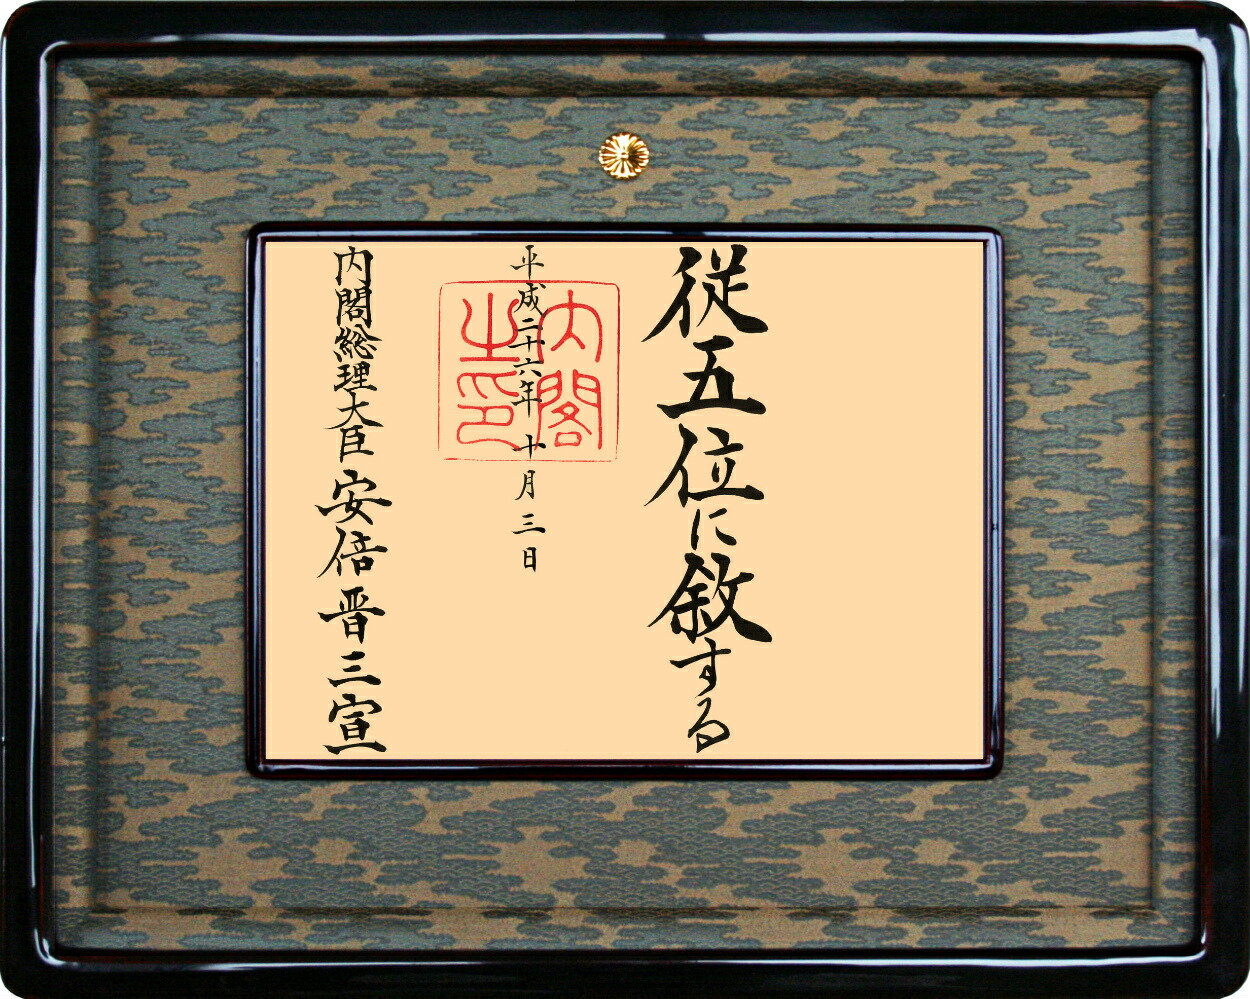 従五位に敘する
平成二十六年十月三日
内閣之印
内閣総理大臣安倍晋三宣